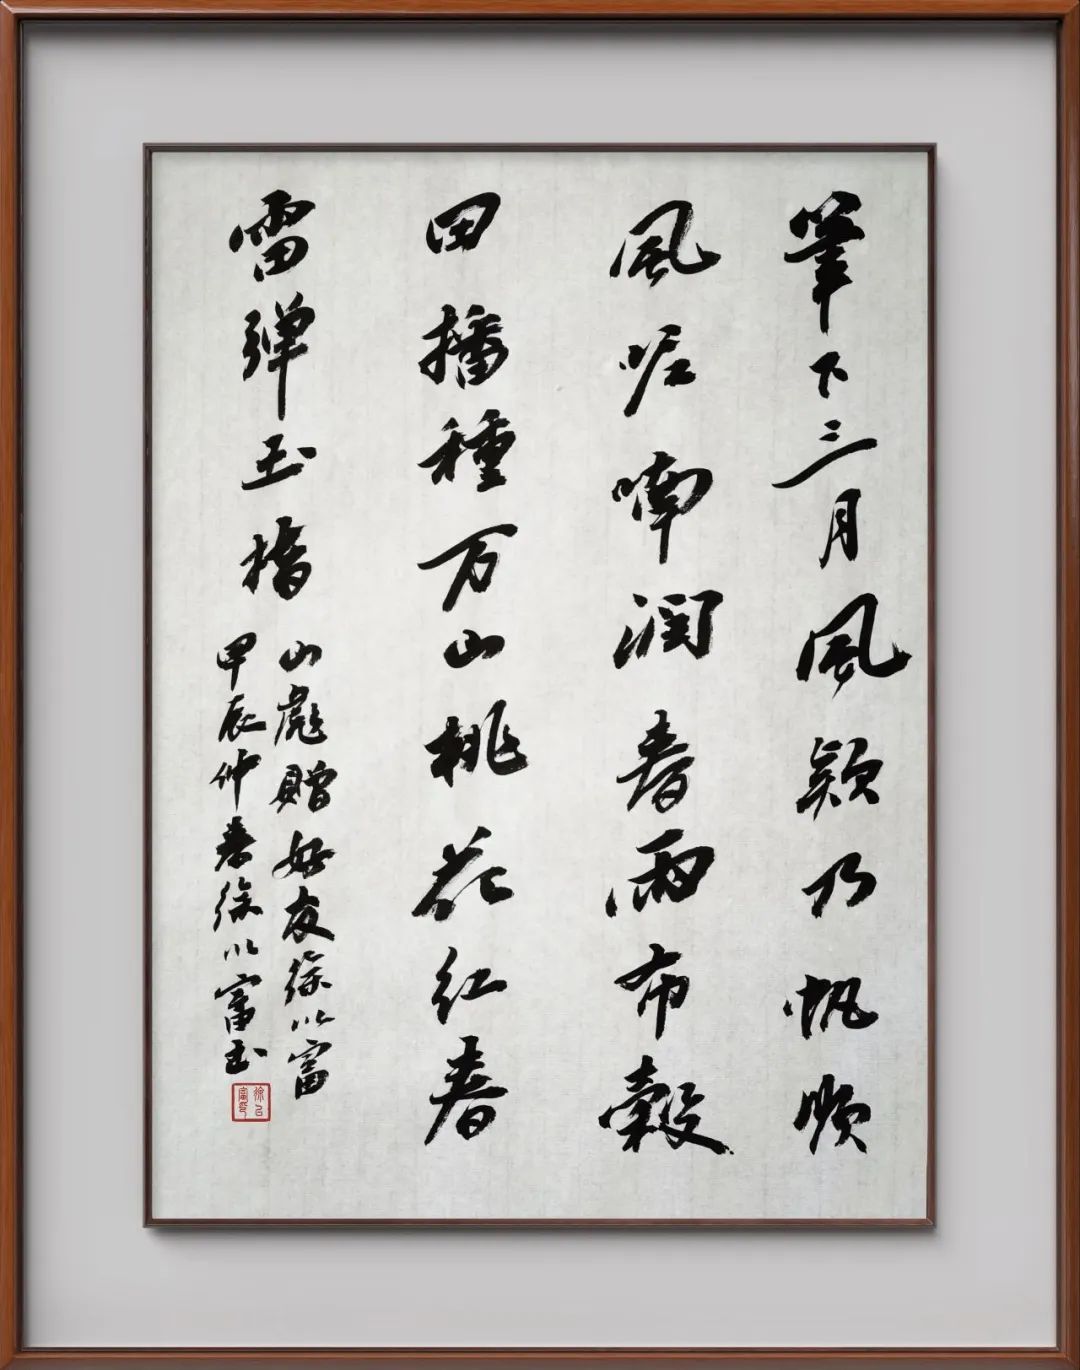 筆下三月風穎乃帆順
風呢喃潤春雨布穀
田播種万山桃花红春
雷弹玉指
山彪赠好友徐以富
甲辰仲春徐以富
徐以富印